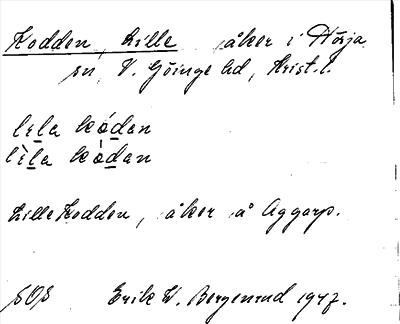 Kodden, Lille åker i Hörja
sn, V. Göinge hd, Krist. l.
lela kódan
lèla kòdan
Lille Kodden, åker å Aggarp.
SOS Erik W. Bergenrud 1947.